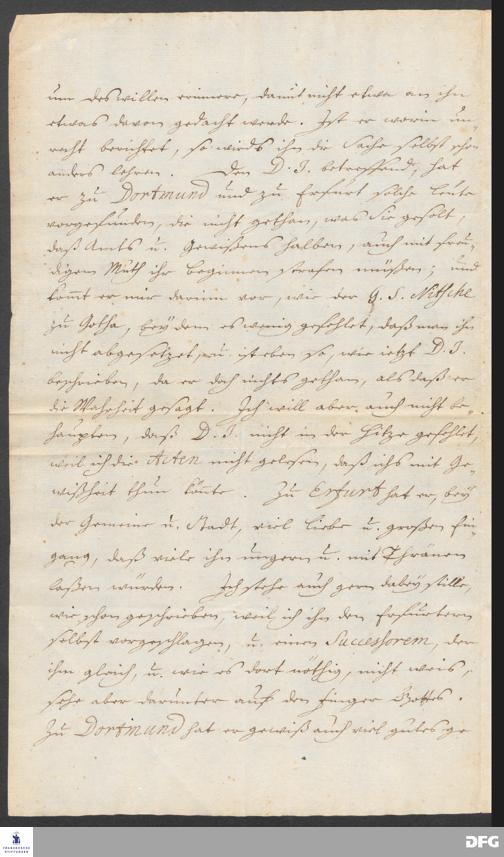 um deswillen erinnere, damit nicht etwa an ihn
etwas davon gedacht werde. Ist er worin un
recht berichtet, so wirds ihn die Sache selbst schon
anders lehren. Den D. J. betreffend, hat
er zu Dortmund und zu Erfurt solche Leute
vorgefunden, die nicht gethan, was sie gesolt,
daß Amts u. Gewißens halben, auch mit freu-
digem Muth ihr beginnen strafen müßen; und
kömt er mir darinn vor, wie der G. S. Nitsche
zu Gotha, bey dem es wenig gefehlet, daß man ihn
nicht abgesetzet, u. ist eben so, wie ietzt D. J.
beschrieben, da er doch nichts gethan, als daß er
die Wahrheit gesagt. Ich will aber auch nicht be-
haupten, daß D. J. nicht in der Hitze gefehlet,
weil ich die Acten nicht gelesen, daß ichs mit Ge-
wißheit thun könte. Zu Erfurt hat er, bey
der Gemeine u. Stadt, viel Liebe u. großen Ein-
gang, daß viele ihn ungern u. mit Thränen
laßen würden. Ich stehe auch gern dabey stille,
wie schon geschrieben, weil ich ihn den Erfurtern
selbst vorgeschlagen, u. einen Successorem, der
ihm gleich, u. wie es dort nöthig, nicht weis,
sehe aber darunter auf den Finger Gottes.
Zu Dortmund hat er gewiß auch viel gutes ge
FRANCKESCHE
STIFTUNGEN
DFG